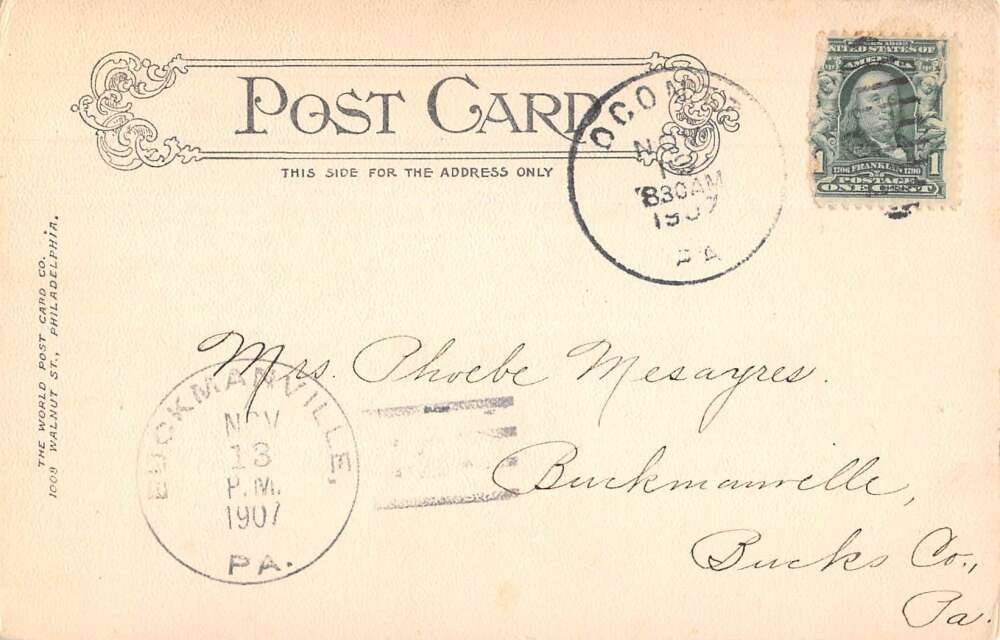 POST CARD
THIS SIDE FOR THE ADDRESS ONLY
OCON
NO
830AM
1907
PA
UNITED STATES OF
AMERICA
1 1706 FRANKLIN 1790 1
POSTAGE
ONE CENT
THE WORLD POST CARD CO.
1008 WALNUT ST., PHILADELPHIA.
Mrs. Phoebe Mesayres.
Buckmanville,
Bucks Co.,
Pa.
BUCKMANVILLE,
NOV
13
P.M.
1907
PA.